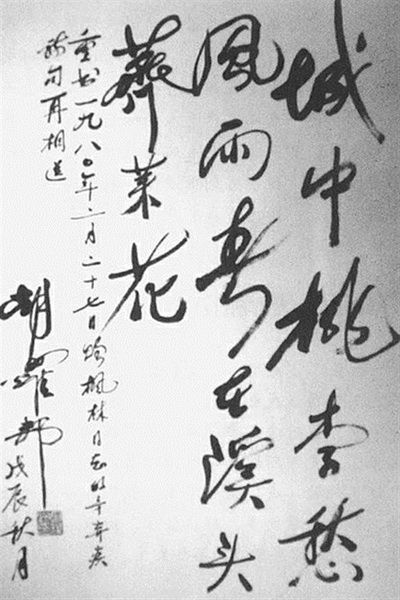 城中桃李愁
風雨春在溪头
薺菜花
重书一九八〇年二月二十七日给楓林同志的辛弃疾
句再相送
胡耀邦 戊辰秋月